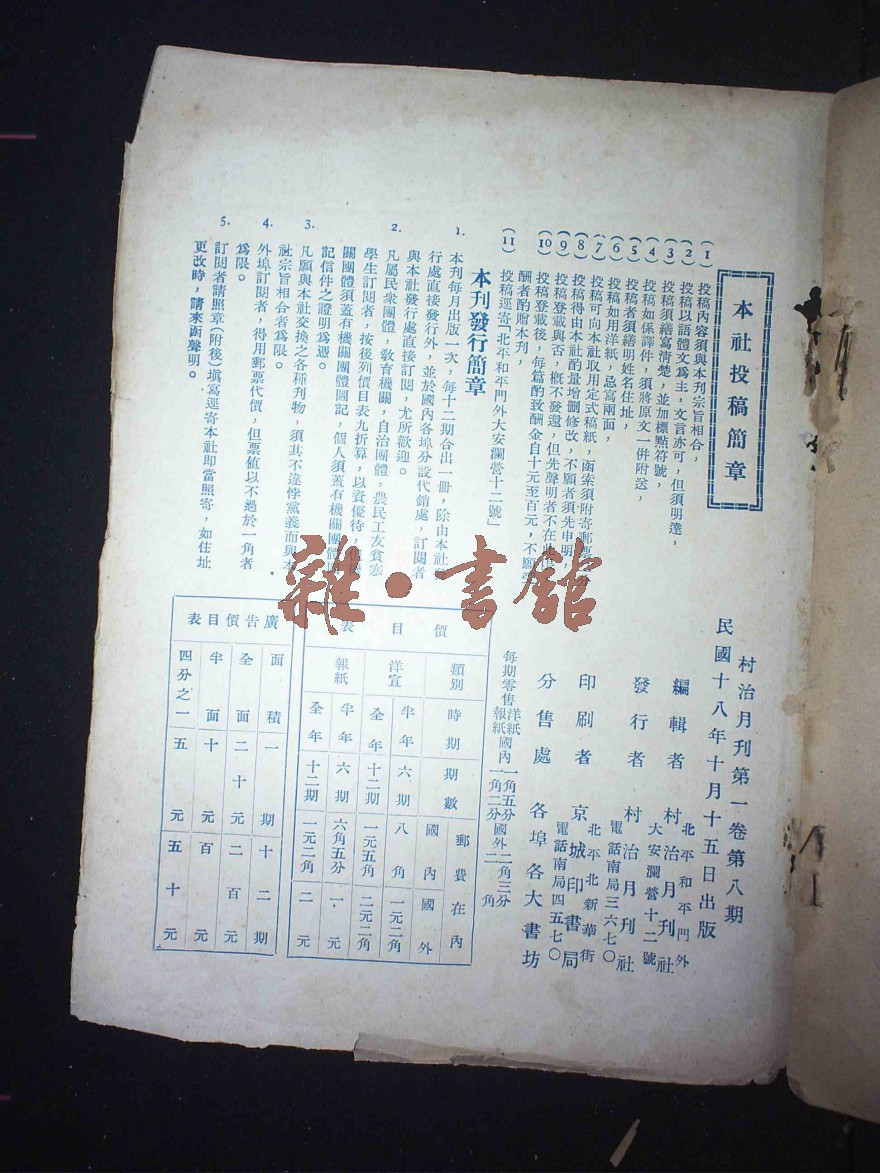 本社投稿簡章
(1) 投稿內容須與本刊宗旨相合，
(2) 投稿以語體文爲主，文言亦可，但須明達，
(3) 投稿須繕寫清楚，並加標點符號，
(4) 投稿如係譯件，須將原文一併附送，
(5) 投稿者須繕明姓名住址，
(6) 投稿如用洋紙，忌寫兩面，
(7) 投稿可向本社取用定式稿紙，函索須附寄郵票
(8) 投稿得由本社酌量增删修改，不願者須先申明，
(9) 投稿登載與否，槪不發還，但先聲明者不在此
(10) 投稿登載後，每篇酌致酬金自十元至百元，不願受
酬者酌贈本刋，
(11) 投稿逕寄「北平和平門外大安瀾營十二號」
本刊發行簡章
1. 本刊每月出版一次，每十二期合出一冊，除由本社
行處直接發行外，並於國內各埠分設代銷處，訂閱者
與本社發行處直接訂閱，尤所歡迎。
2. 凡屬民衆團體，敎育機關，自治團體，農民工友貧寒
學生訂閱者，按後列價目表九折算，以資優待，
關團體須蓋有機關團體圖記，個人須蓋有機關團體
記信件之證明爲憑。
3. 凡願與本社交換之各種刊物，須其不違悖黨義而與本
社宗旨相合者爲限。
4. 外埠訂閱者，得用郵票代價，但票値以不過於一角者
爲限。
5. 訂閱者請照章(附後)塡寫逕寄本社即當照寄，如住址
更改時，請來函聲明。
村治月刊第一卷第八期
民國十八年十月十五日出版
編輯者 村治月刊社
北平和平門外
大安瀾營十二號
發行者 村治月刊社
電話南局三六七〇
印刷者 京城印書局
北平北新華街
電話南局四五七〇
分售處 各埠各大書坊
每期零售 洋紙國內一角五分國外二角三分
報紙國內一角二分國外二角
價目表
類別 時期 期數 郵費在內 國內 國外
洋宣 半年 六期 八角 一元二角
全年 十二期 一元五角 二元二角
報紙 半年 六期 六角五分 一元
全年 十二期 一元二角 二元
廣告價目表
面積 一期 十二期
全面 二十元 二百元
半面 十元 百元
四分之一 五元 五十元
雜·書館